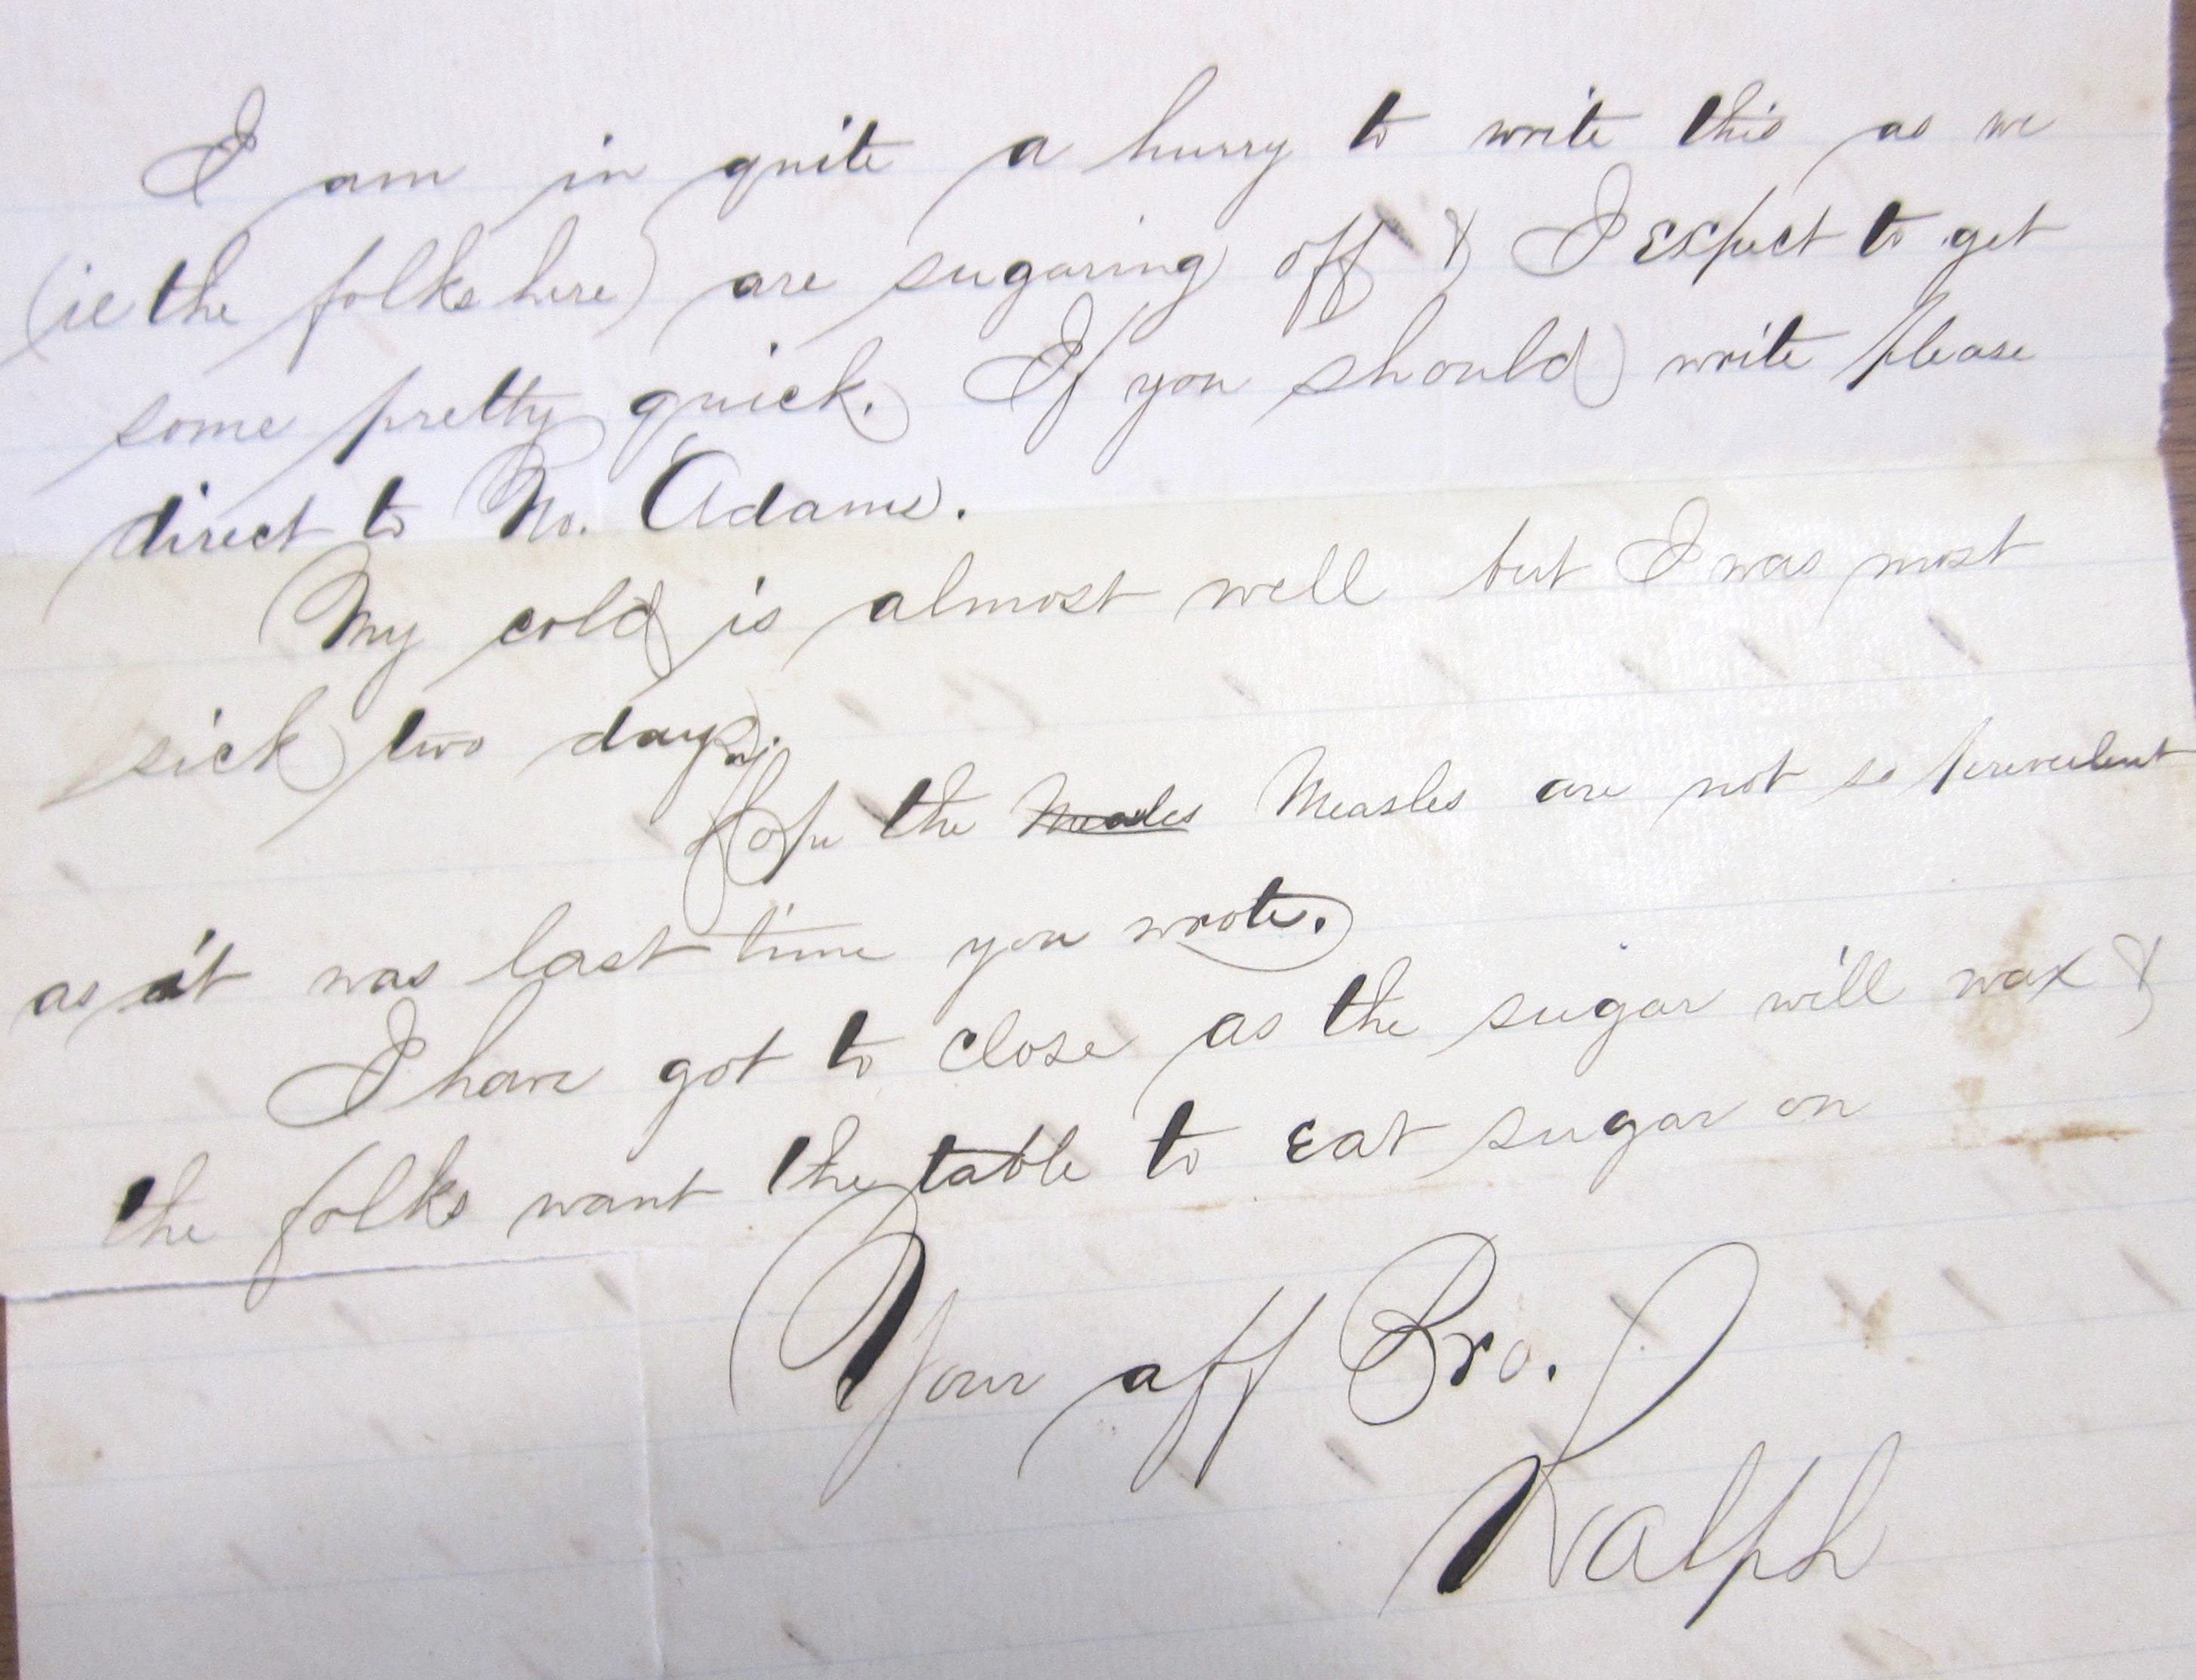 I am in quite a hurry to write this as we
(ie the folks here) are sugaring off & I Expect to get
some pretty quick. If you should write please
direct to No. Adams.
My cold is almost well but I was most
sick two days.
Hope the ~~Meales~~ Measles are not so prevelent
as it was last time you wrote.
I have got to close as the sugar will wax &
the folks want the table to Eat sugar on
Your aff Bro.
Ralph